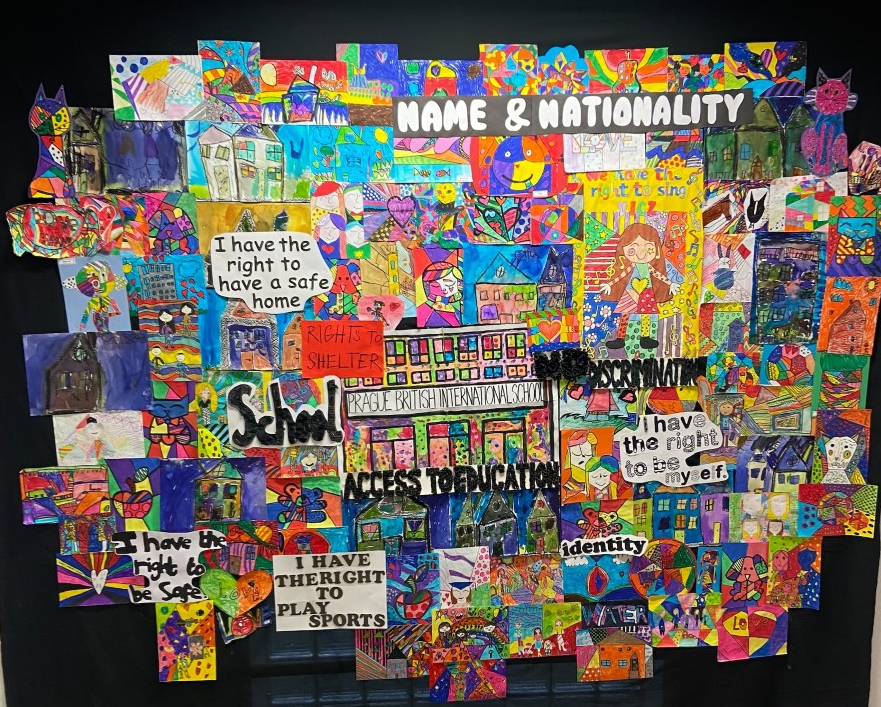 NAME & NATIONALITY
We have the
right to sing
I have the
right to
have a safe
home
RIGHTS TO
SHELTER
NO DISCRIMINATION
School
PRAGUE BRITISH INTERNATIONAL SCHOOL
I have
the right
to be
myself.
ACCESS TO EDUCATION
I have the
right to
be Safe
LOVE
identity
I HAVE
THE RIGHT
TO
PLAY
SPORTS